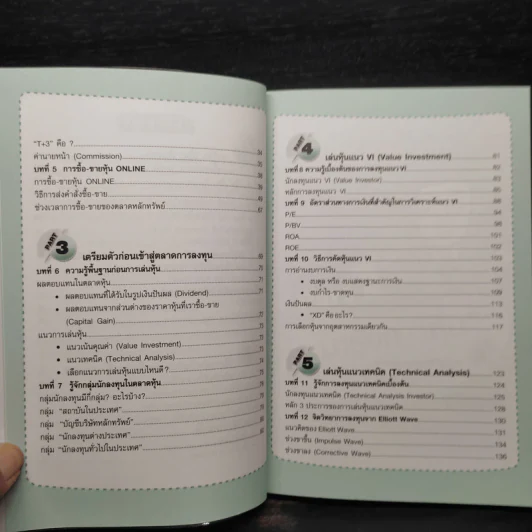 "T+3" คือ ? 34
ค่านายหน้า (Commission)
บทที่ 5 การซื้อ-ขายหุ้น ONLINE
การซื้อ-ขายหุ้น ONLINE
วิธีการส่งคำสั่งซื้อ-ขาย
ช่วงเวลาการซื้อ-ขายของตลาดหลักทรัพย์
PART 3
เตรียมตัวก่อนเข้าสู่ตลาดการลงทุน
บทที่ 6 ความรู้พื้นฐานก่อนการเล่นหุ้น
ผลตอบแทนในตลาดหุ้น
• ผลตอบแทนที่ได้รับในรูปเงินปันผล (Dividend)
• ผลตอบแทนจากส่วนต่างของราคาหุ้นที่เราซื้อ-ขาย
(Capital Gain)
แนวการเล่นหุ้น
• แนวเน้นคุณค่า (Value Investment)
• แนวเทคนิค (Technical Analysis)
• เลือกแนวการเล่นหุ้นแบบไหนดี?
บทที่ 7 รู้จักกลุ่มนักลงทุนในตลาดหุ้น
กลุ่มนักลงทุนมีกี่กลุ่ม? อะไรบ้าง?
กลุ่ม "สถาบันในประเทศ"
กลุ่ม "บัญชีบริษัทหลักทรัพย์"
กลุ่ม "นักลงทุนต่างประเทศ"
กลุ่ม "นักลงทุนทั่วไปในประเทศ"
PART 4
เล่นหุ้นแนว VI (Value Investment) 81
บทที่ 8 ความรู้เบื้องต้นของการลงทุนแนว VI 82
นักลงทุนแนว VI (Value Investor) 83
หลักการลงทุนแนว VI
บทที่ 9 อัตราส่วนทางการเงินที่สำคัญในการวิเคราะห์แนว VI
P/E 94
P/BV 98
ROA 101
ROE
บทที่ 10 วิธีการคัดหุ้นแนว VI 103
การอ่านงบการเงิน 104
• งบดุล หรือ งบแสดงฐานะการเงิน 107
• งบกำไร-ขาดทุน 109
เงินปันผล 113
• "XD" คืออะไร? 116
การเลือกหุ้นจากอุตสาหกรรมเดียวกัน 117
PART 5
เล่นหุ้นแนวเทคนิค (Technical Analysis) 123
บทที่ 11 รู้จักการลงทุนแนวเทคนิคเบื้องต้น 124
นักลงทุนแนวเทคนิค (Technical Analysis Investor) 125
หลัก 3 ประการของการเล่นหุ้นแนวเทคนิค
บทที่ 12 จิตวิทยาการลงทุนจาก Elliott Wave 130
แนวคิดของ Elliott Wave 131
ช่วงขาขึ้น (Impulse Wave) 134
ช่วงขาลง (Corrective Wave) 136